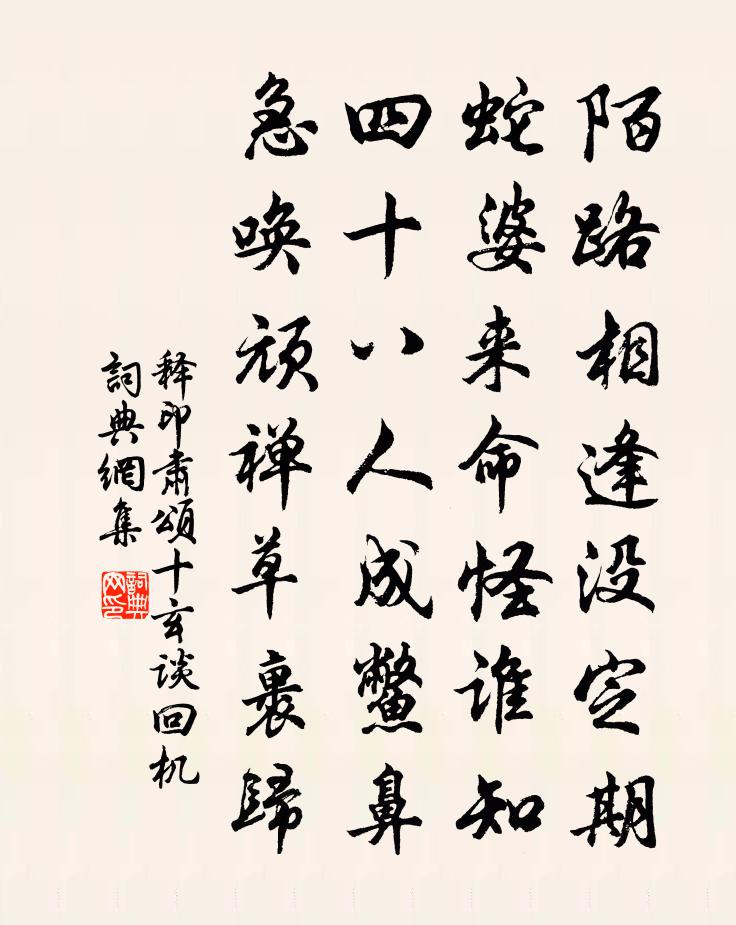 陌路相逢没定期
蛇婆来命怪谁知
四十八人成鳖鼻
急唤顽禅草裹歸
释印肃頌十玄谈回机
詞典網集
詞典网印